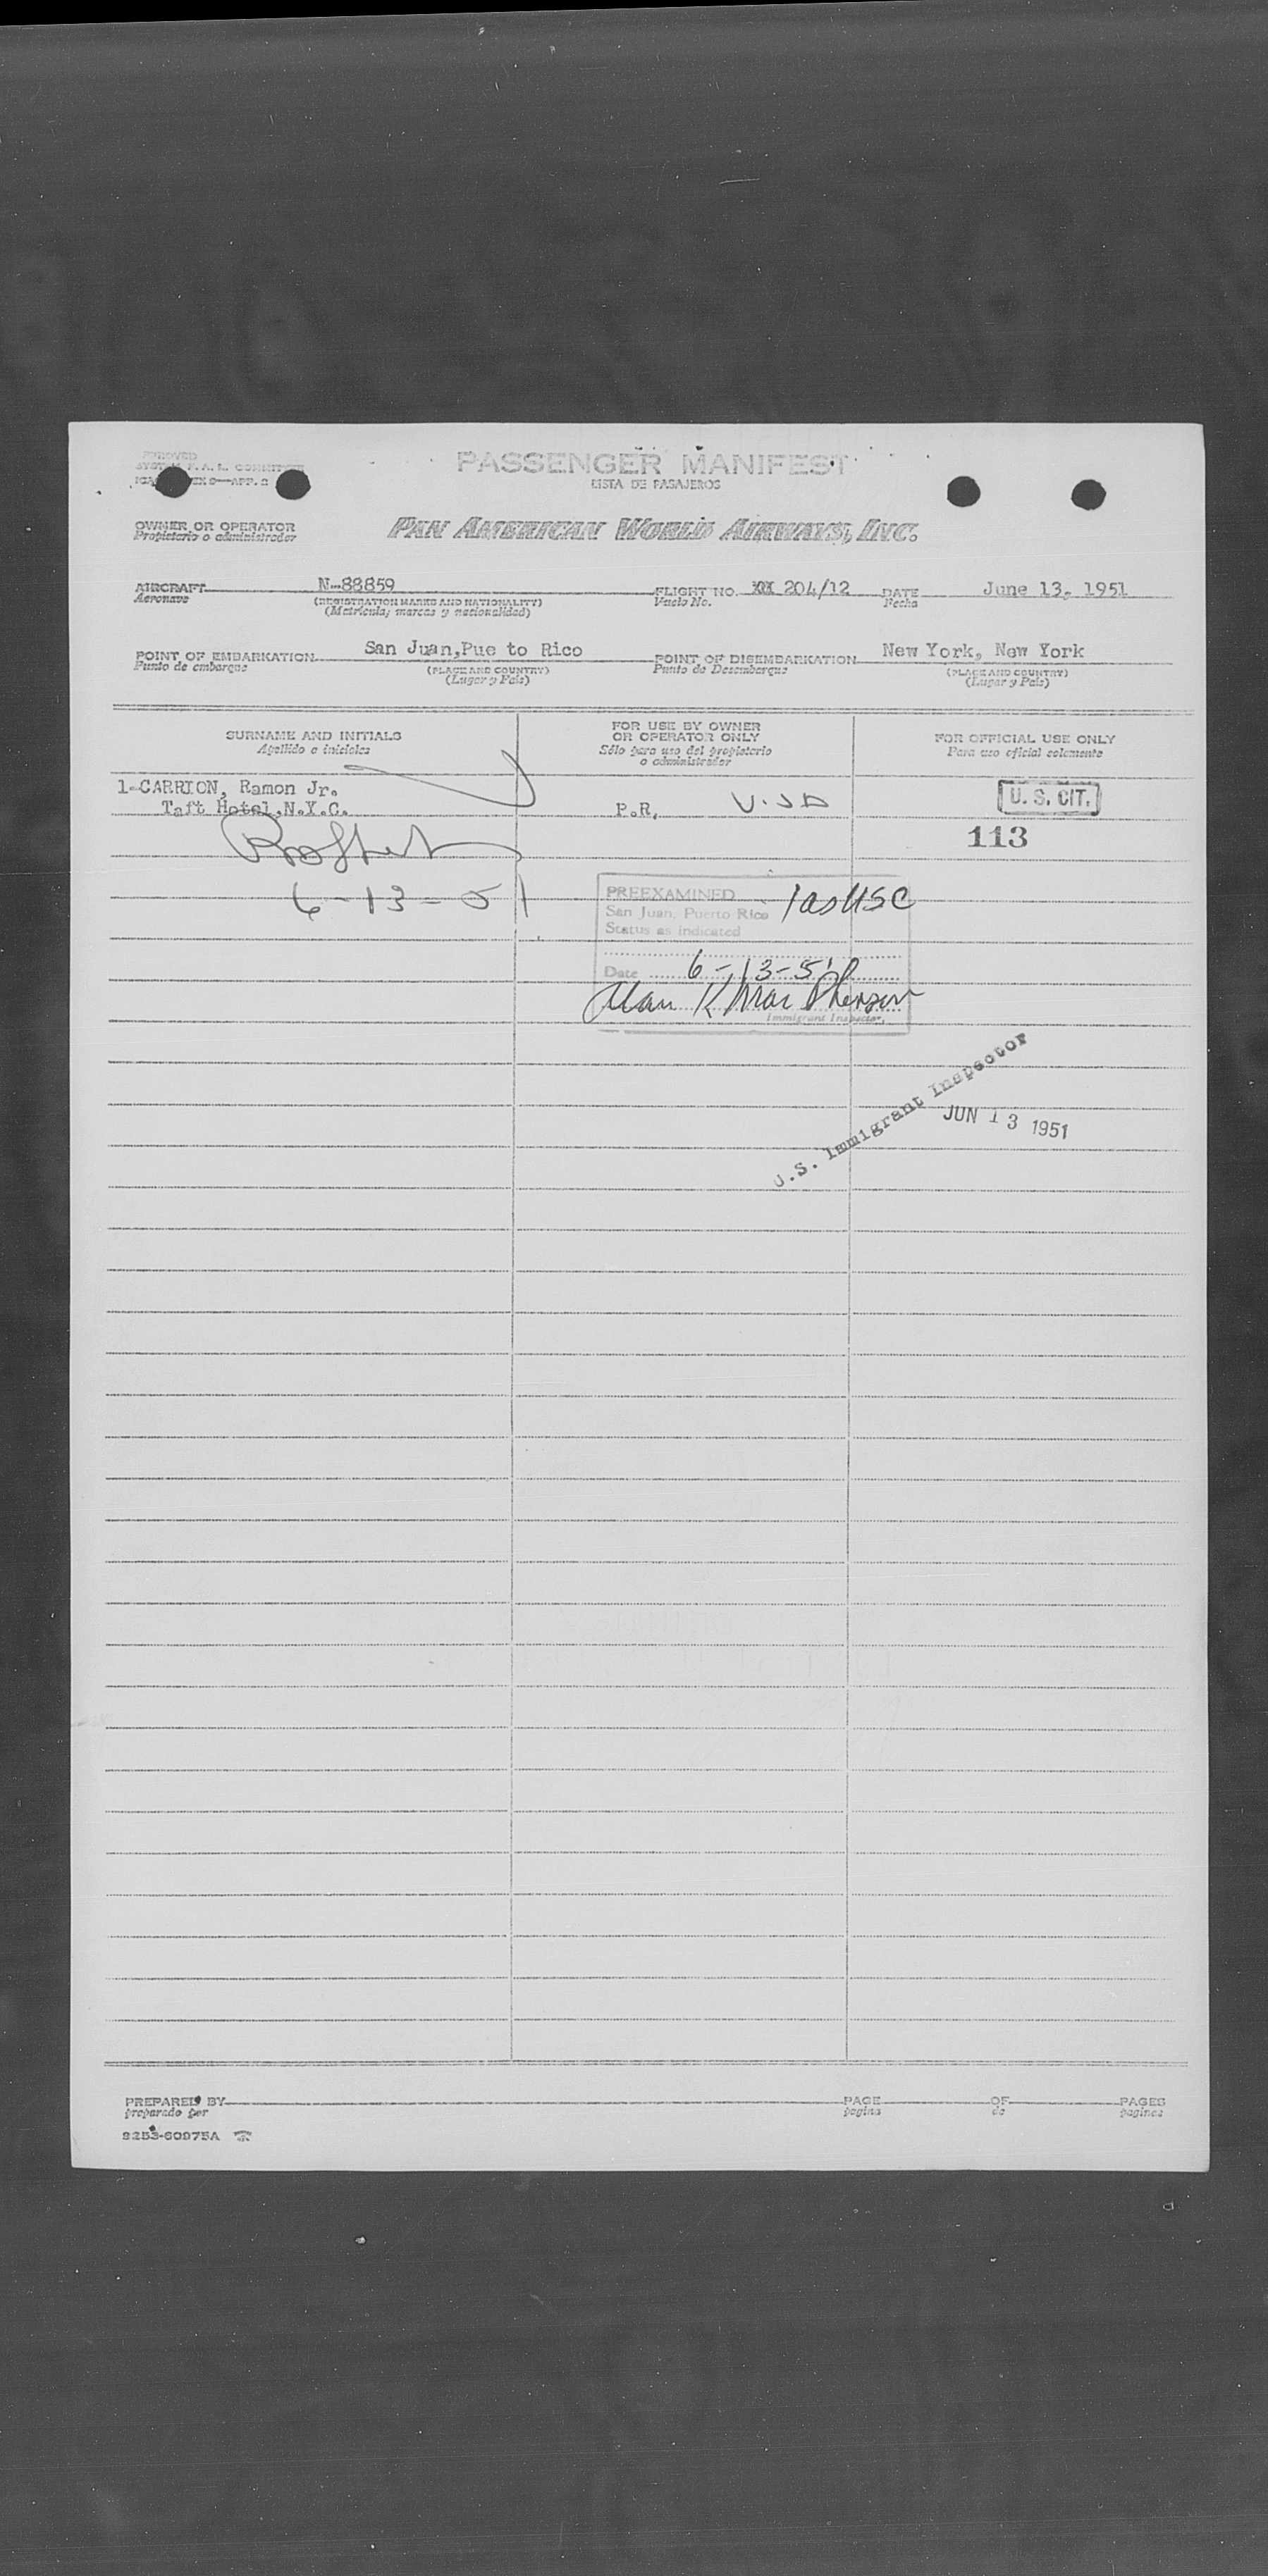 PASSENGER MANIFEST
LISTA DE PASAJEROS
OWNER OR OPERATOR
Propietario o administrador
PAN AMERICAN WORLD AIRWAYS, INC.
AIRCRAFT N-88859 FLIGHT NO. XX 204/12 DATE June 13, 1951
Aeronave (REGISTRATION MARKS AND NATIONALITY) Vuelo No. Fecha
(Matricula, marcas y nacionalidad)
POINT OF EMBARKATION San Juan,Pue to Rico POINT OF DISEMBARKATION New York, New York
Punto de embarque (PLACE AND COUNTRY) Punto de Desembarque (PLACE AND COUNTRY)
(Lugar y Pais) (Lugar y Pais)
SURNAME AND INITIALS FOR USE BY OWNER OR OPERATOR ONLY FOR OFFICIAL USE ONLY
Apellido e iniciales Sólo para uso del propietario o administrador Para uso oficial solamente
1-CARRION, Ramon Jr. U. S. CIT.
Taft Hotel,N.Y.C. P.R.
113
6-13-51
PREEXAMINED 1 as USC
San Juan, Puerto Rico
Status as indicated
Date 6-13-51
Alan K MacPherson
Immigrant Inspector
U.S. Immigrant Inspector
JUN 13 1951
PREPARED BY PAGE OF PAGES
preparado por pagina de paginas
9253-60975A